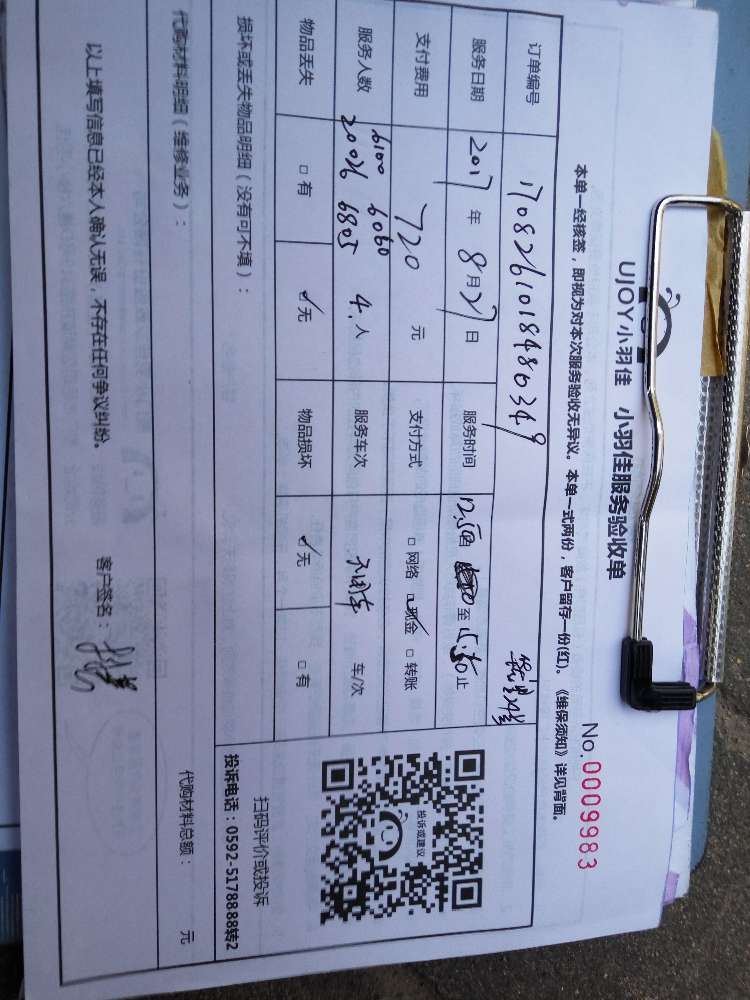 UJOY小羽佳 小羽佳服务验收单
No.0009983
本单一经核签，即视为对本次服务验收无异议。本单一式两份，客户留存一份(红)。《维保须知》详见背面。
订单编号 1708261018480349
服务日期 2017 年 8 月 27 日 服务时间 至 15:30 止
支付费用 720 元 支付方式 □ 网络 ☑ 现金 □ 转账
服务人数 6100 6060 20026 6805 4. 人 服务车次 不用车 车/次
物品丢失 □ 有 ☑ 无 物品损坏 ☑ 无 □ 有
投诉或建议
扫码评价或投诉
投诉电话：0592-5178888转2
损坏或丢失物品明细（没有可不填）：
代购材料明细（维修业务）： 代购材料总额： 元
以上填写信息已经本人确认无误，不存在任何争议纠纷。 客户签名：